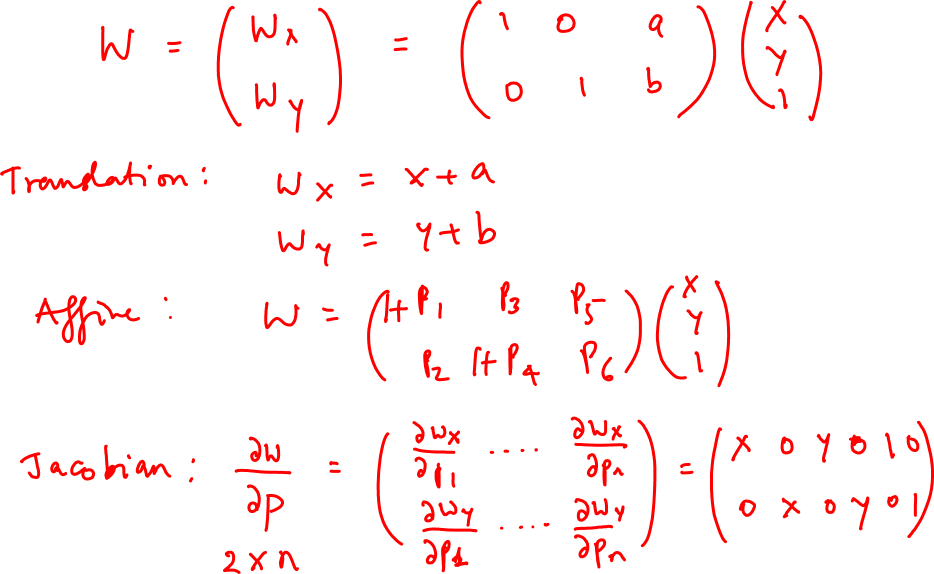 W = ( Wx ; Wy ) = ( 1 0 a ; 0 1 b ) ( x ; y ; 1 )
Translation: Wx = x + a
Wy = y + b
Affine: W = ( 1+P1 P3 P5 ; P2 1+P4 P6 ) ( x ; y ; 1 )
Jacobian: ∂W/∂P = ( ∂Wx/∂P1 .... ∂Wx/∂Pn ; ∂Wy/∂P1 .... ∂Wy/∂Pn ) = ( x 0 y 0 1 0 ; 0 x 0 y 0 1 )
2 x n